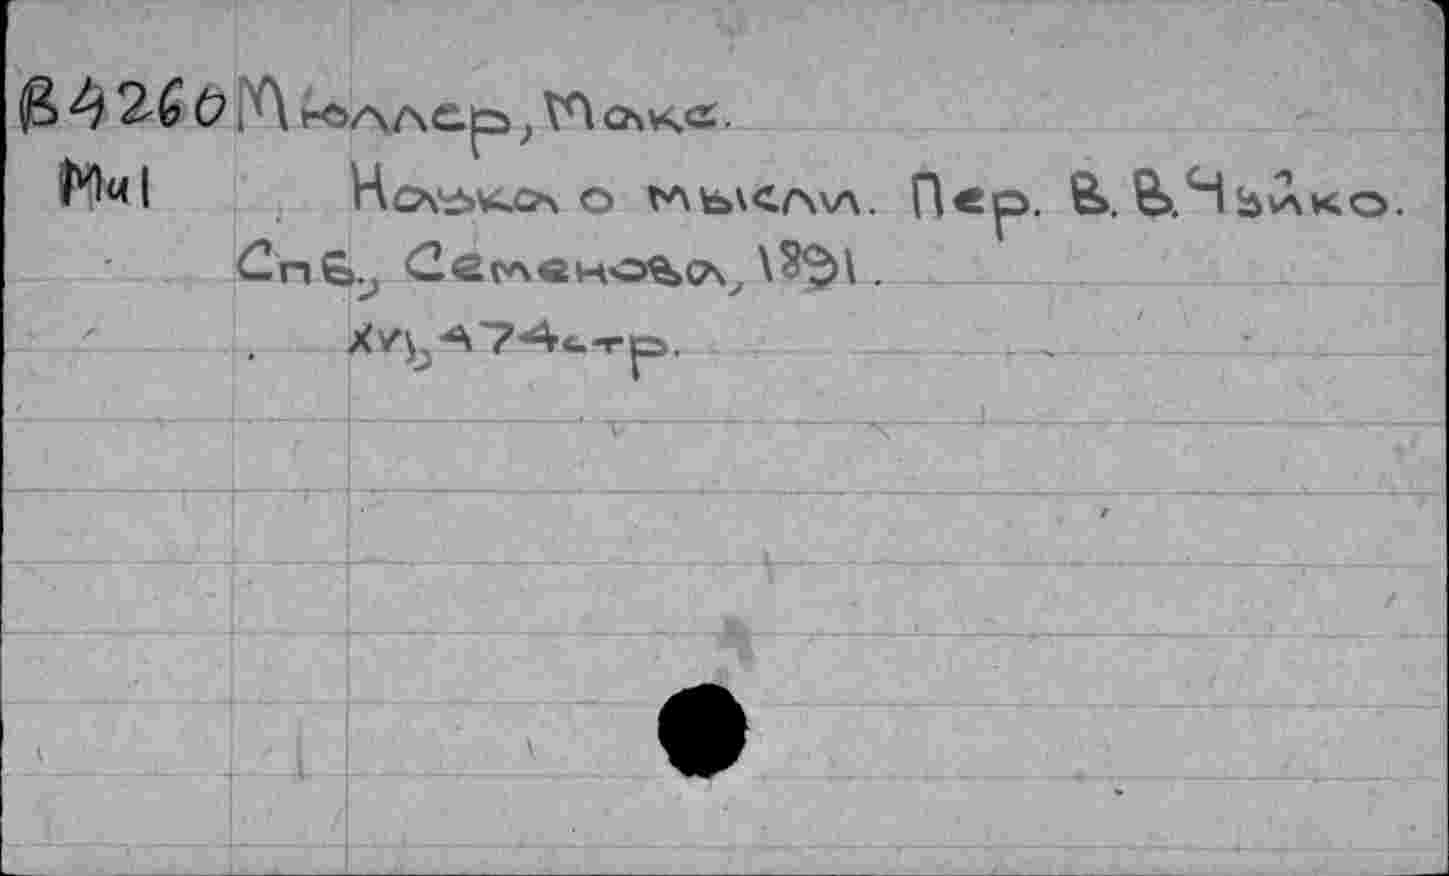 В4260 Мюллер, Макс.
Наука о мысли. Пер. В. В. Чуйко.
Спб., Семенова, 1891.
474 стр.